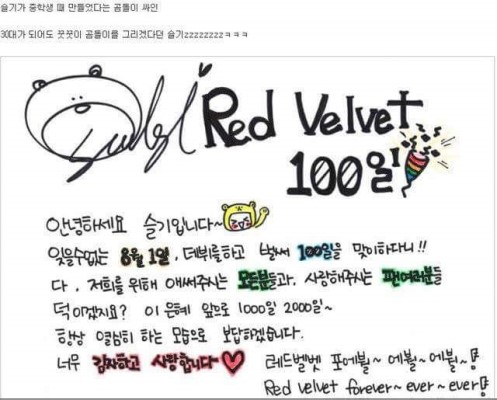 슬기가 중학생 때 만들었다는 곰돌이 싸인
30대가 되어도 꿋꿋이 곰돌이를 그리겠다던 슬기zzzzzzzzㅋㅋㅋ
Red Velvet
100일!
안녕하세요 슬기입니다~
잊을수없는 8월 1일, 데뷔를하고 벌써 100일을 맞이하다니!!
다, 저희를 위해 애써주시는 모든분들과, 사랑해주시는 팬여러분들
덕이겠지요? 이 은혜 앞으로 1000일 2000일~
항상 열심히 하는 모습으로 보답하겠습니다.
너무 감사하고 사랑합니다~♥
레드벨벳 포에볼~에볼~에볼~!
Red Velvet forever~ever~ever!